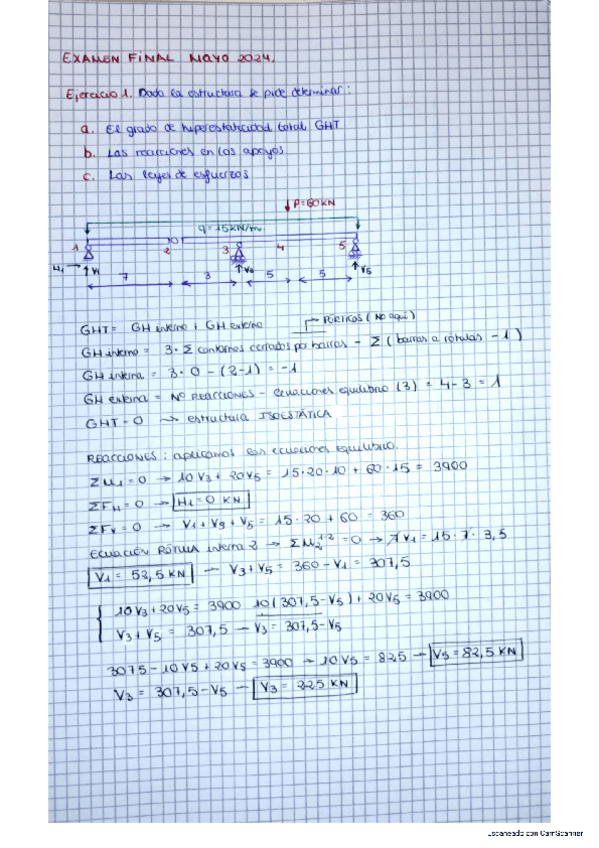 EXAMEN FINAL MAYO 2024.
Ejercicio 1. Dada la estructura se pide determinar:
a. El grado de hiperestaticidad total GHT
b. Las reacciones en los apoyos
c. Las leyes de esfuerzos
P=60KN
q=15KN/m
1 2 3 4 5
H1 V1 V3 V5
7 3 5 5
GHT = GH interno + GH externo PÓRTICOS (No aquí)
GH interno = 3· Σ contornos cerrados por barras - Σ (barras a rótulas - 1)
GH interna = 3·0 - (2-1) = -1
GH externa = Nº REACCIONES - ecuaciones equilibrio (3) = 4-3 = 1
GHT = 0 → estructura ISOESTÁTICA
REACCIONES: aplicamos las ecuaciones equilibrio.
ΣM1=0 → 10V3 + 20V5 = 15·20·10 + 60·15 = 3900
ΣFH=0 → H1=0 KN
ΣFV=0 → V1 + V3 + V5 = 15·20 + 60 = 360
Ecuación RÓTULA interna 2 → ΣM2 1-2 = 0 → 7V1 = 15·7·3,5
V1 = 52,5 KN — V3+V5 = 360-V1 = 307,5
10V3+20V5 = 3900 10(307,5-V5) + 20V5 = 3900
V3+V5 = 307,5 — V3 = 307,5-V5
3075-10V5+20V5 = 3900 — 10V5 = 825 — V5 = 82,5 KN
V3 = 307,5-V5 — V3 = 225 KN
Escaneado con CamScanner